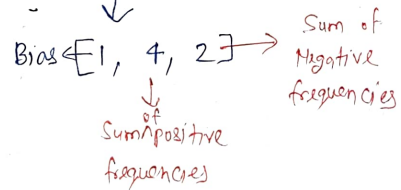 Bias ← [1, 4, 2] → Sum of
Negative
frequencies
↓
Sum of positive
frequencies